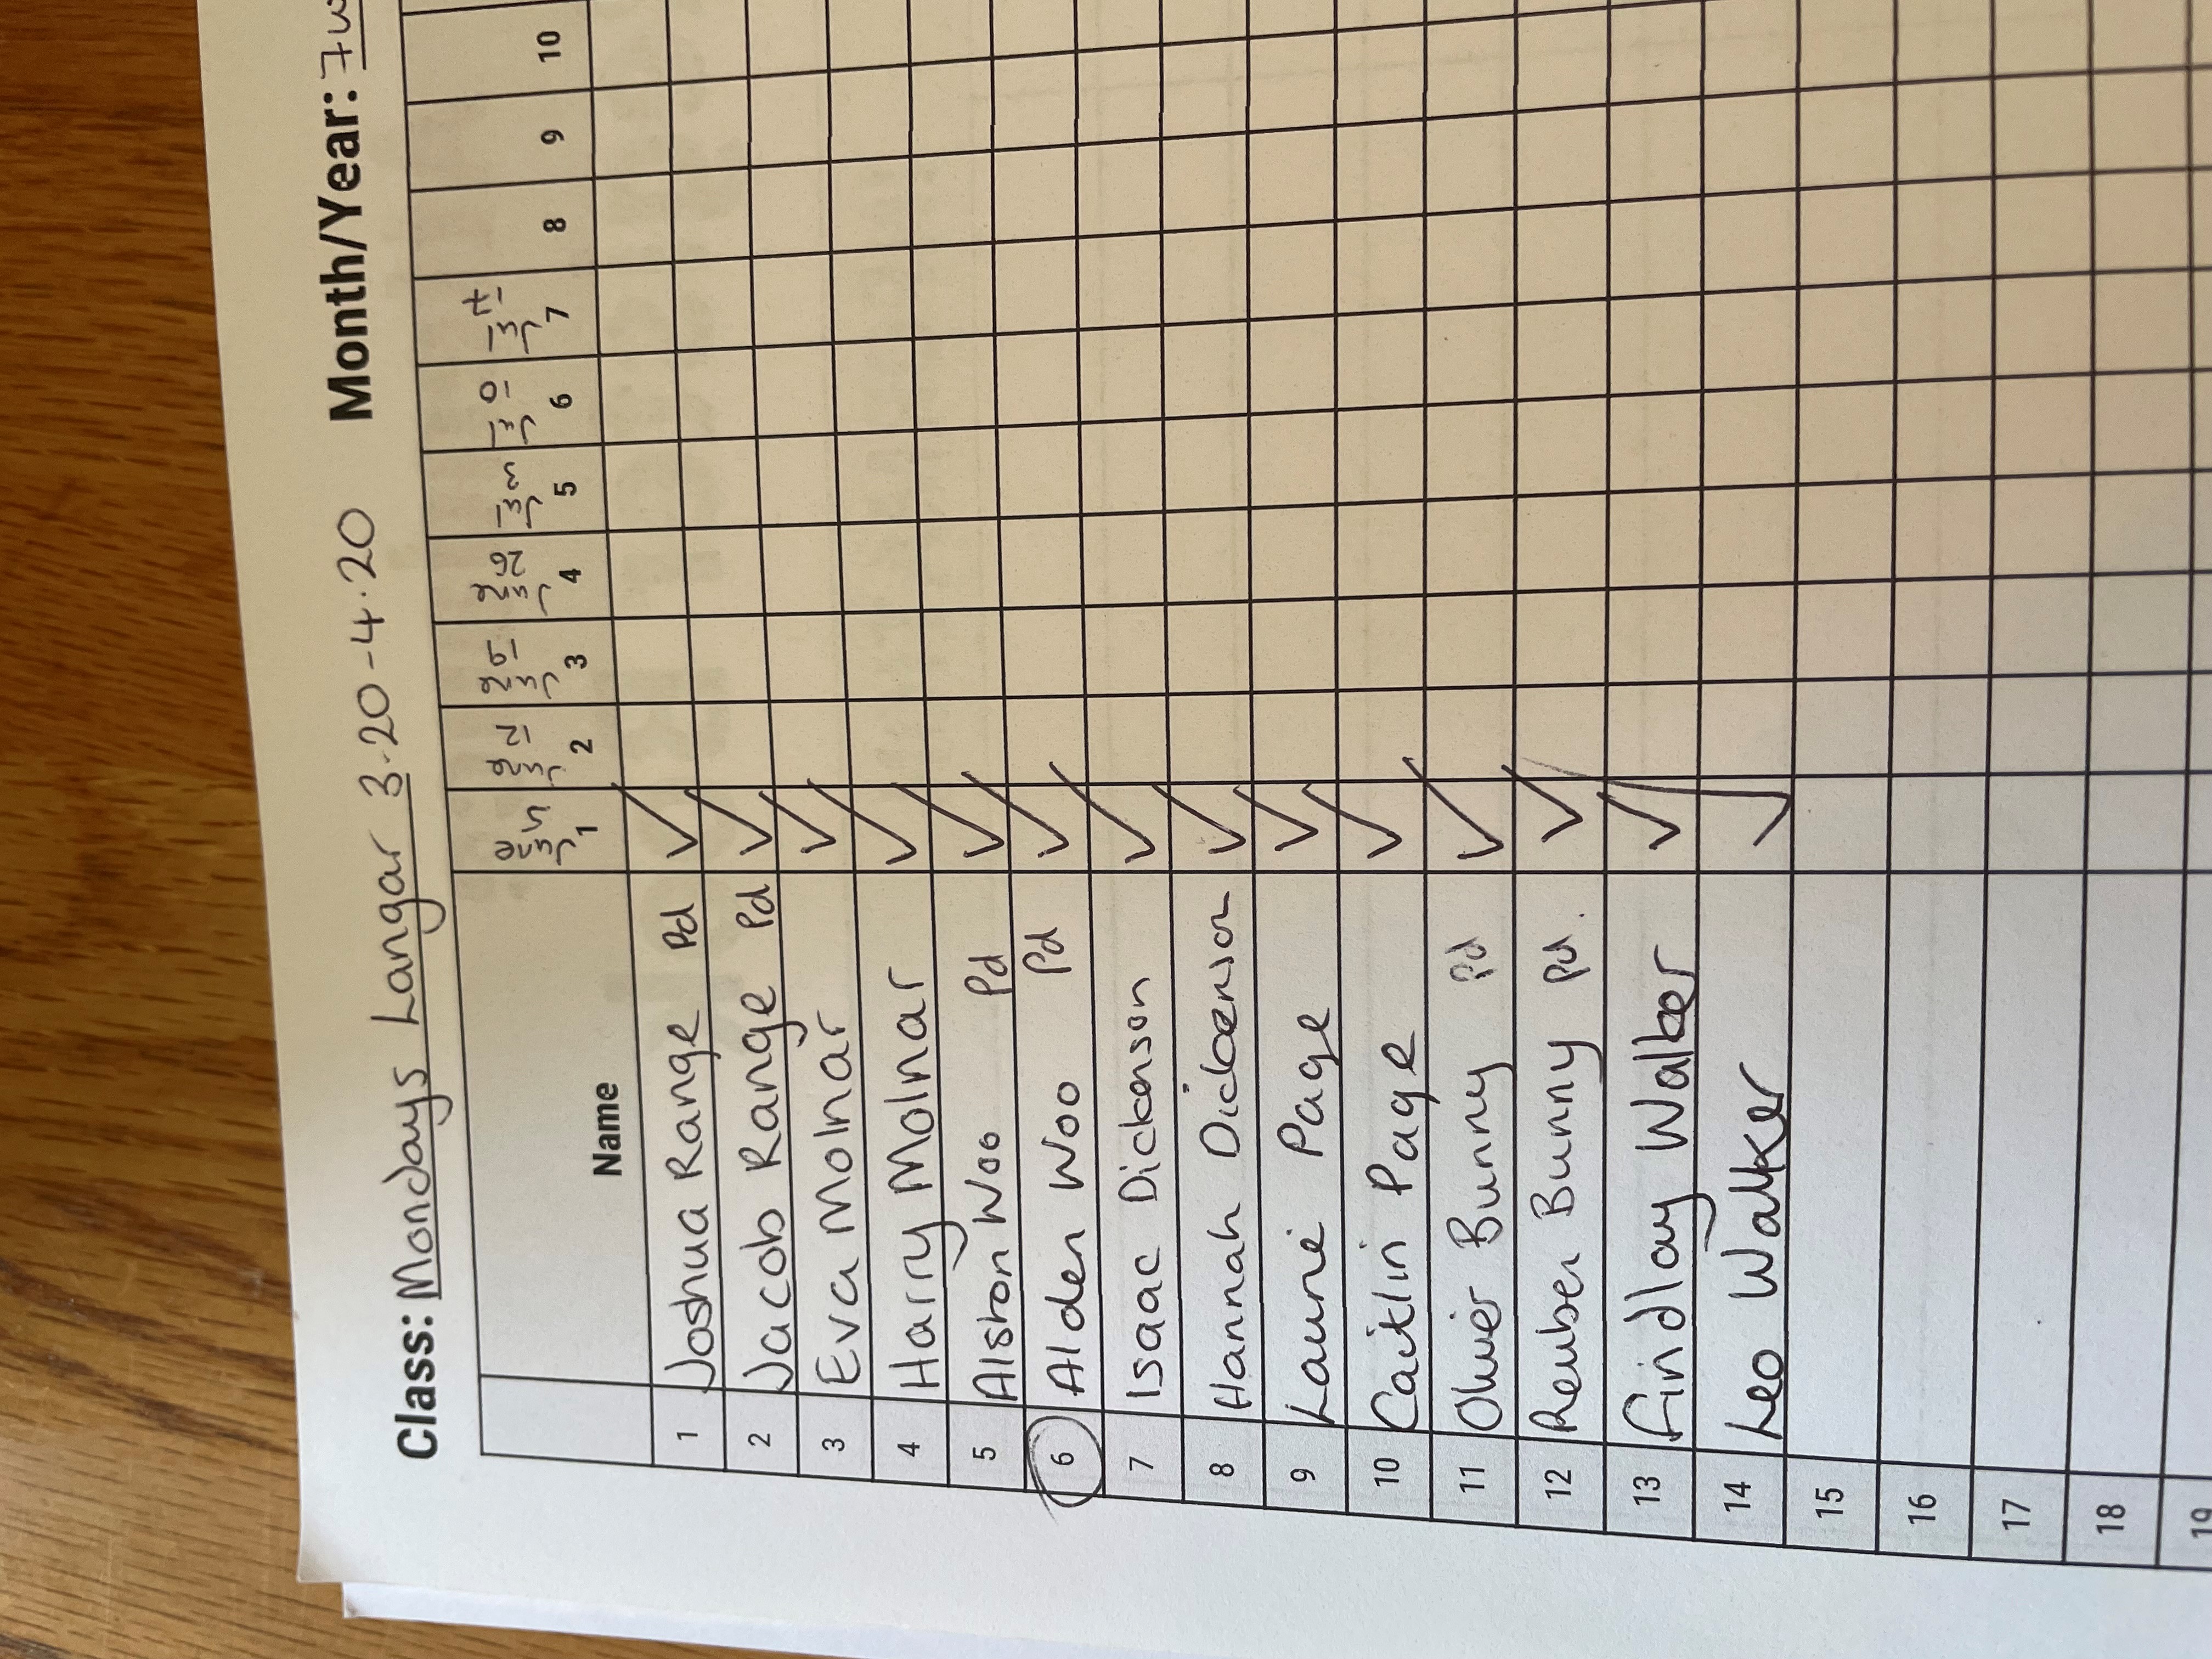 Class: Mondays Langar 3.20-4.20 Month/Year: 7w
1 2 3 4 5 6 7 8 9 10
Name
1 Joshua Range Pd ✓
2 Jacob Range Pd ✓
3 Eva Molnar ✓
4 Harry Molnar ✓
5 Alston Woo Pd ✓
6 Alden Woo Pd ✓
7 Isaac Dickenson ✓
8 Hannah Dickenson ✓
9 Laurie Page ✓
10 Caitlin Page ✓
11 Oliver Bunny Pd ✓
12 Reuben Bunny Pd. ✓
13 Findlay Walker ✓
14 Leo Walker ✓
15
16
17
18
19